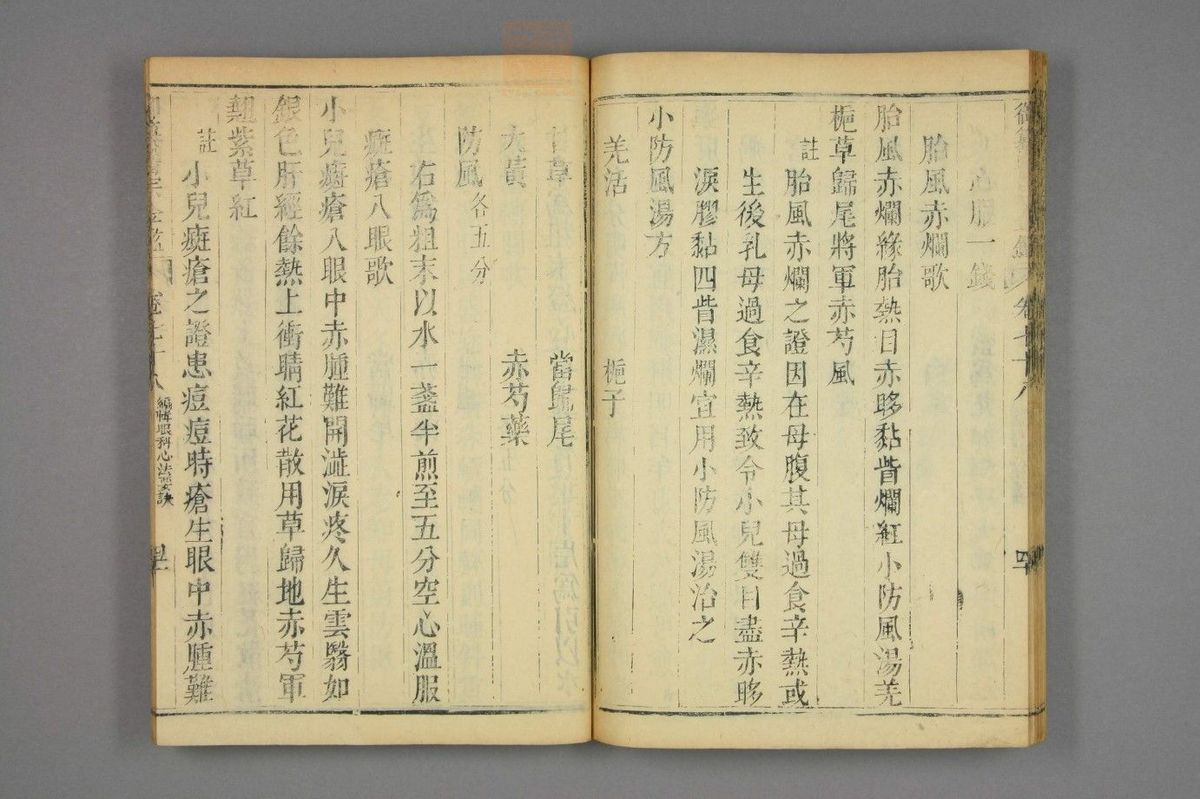 卷七十八
心服一錢
胎風赤爛歌
胎風赤爛緣胎熱目赤眵黏眥爛紅小防風湯羌
梔草歸尾將軍赤芍風
註胎風赤爛之證因在母腹其母過食辛熱或
生後乳母過食辛熱致令小兒雙目盡赤眵
淚膠黏四眥濕爛宜用小防風湯治之
小防風湯方
羌活 梔子
甘草 當歸尾
大黃 赤芍藥
防風各五分
右為粗末以水一盞半煎至五分空心溫服
癍瘡入眼歌
小兒癍瘡入眼中赤腫難開澁淚疼久生雲翳如
銀色肝經餘熱上衝睛紅花散用草歸地赤芍軍
翹紫草紅
註小兒癍瘡之證患痘痘時瘡生眼中赤腫難
卷七十八 編輯眼科心法要訣